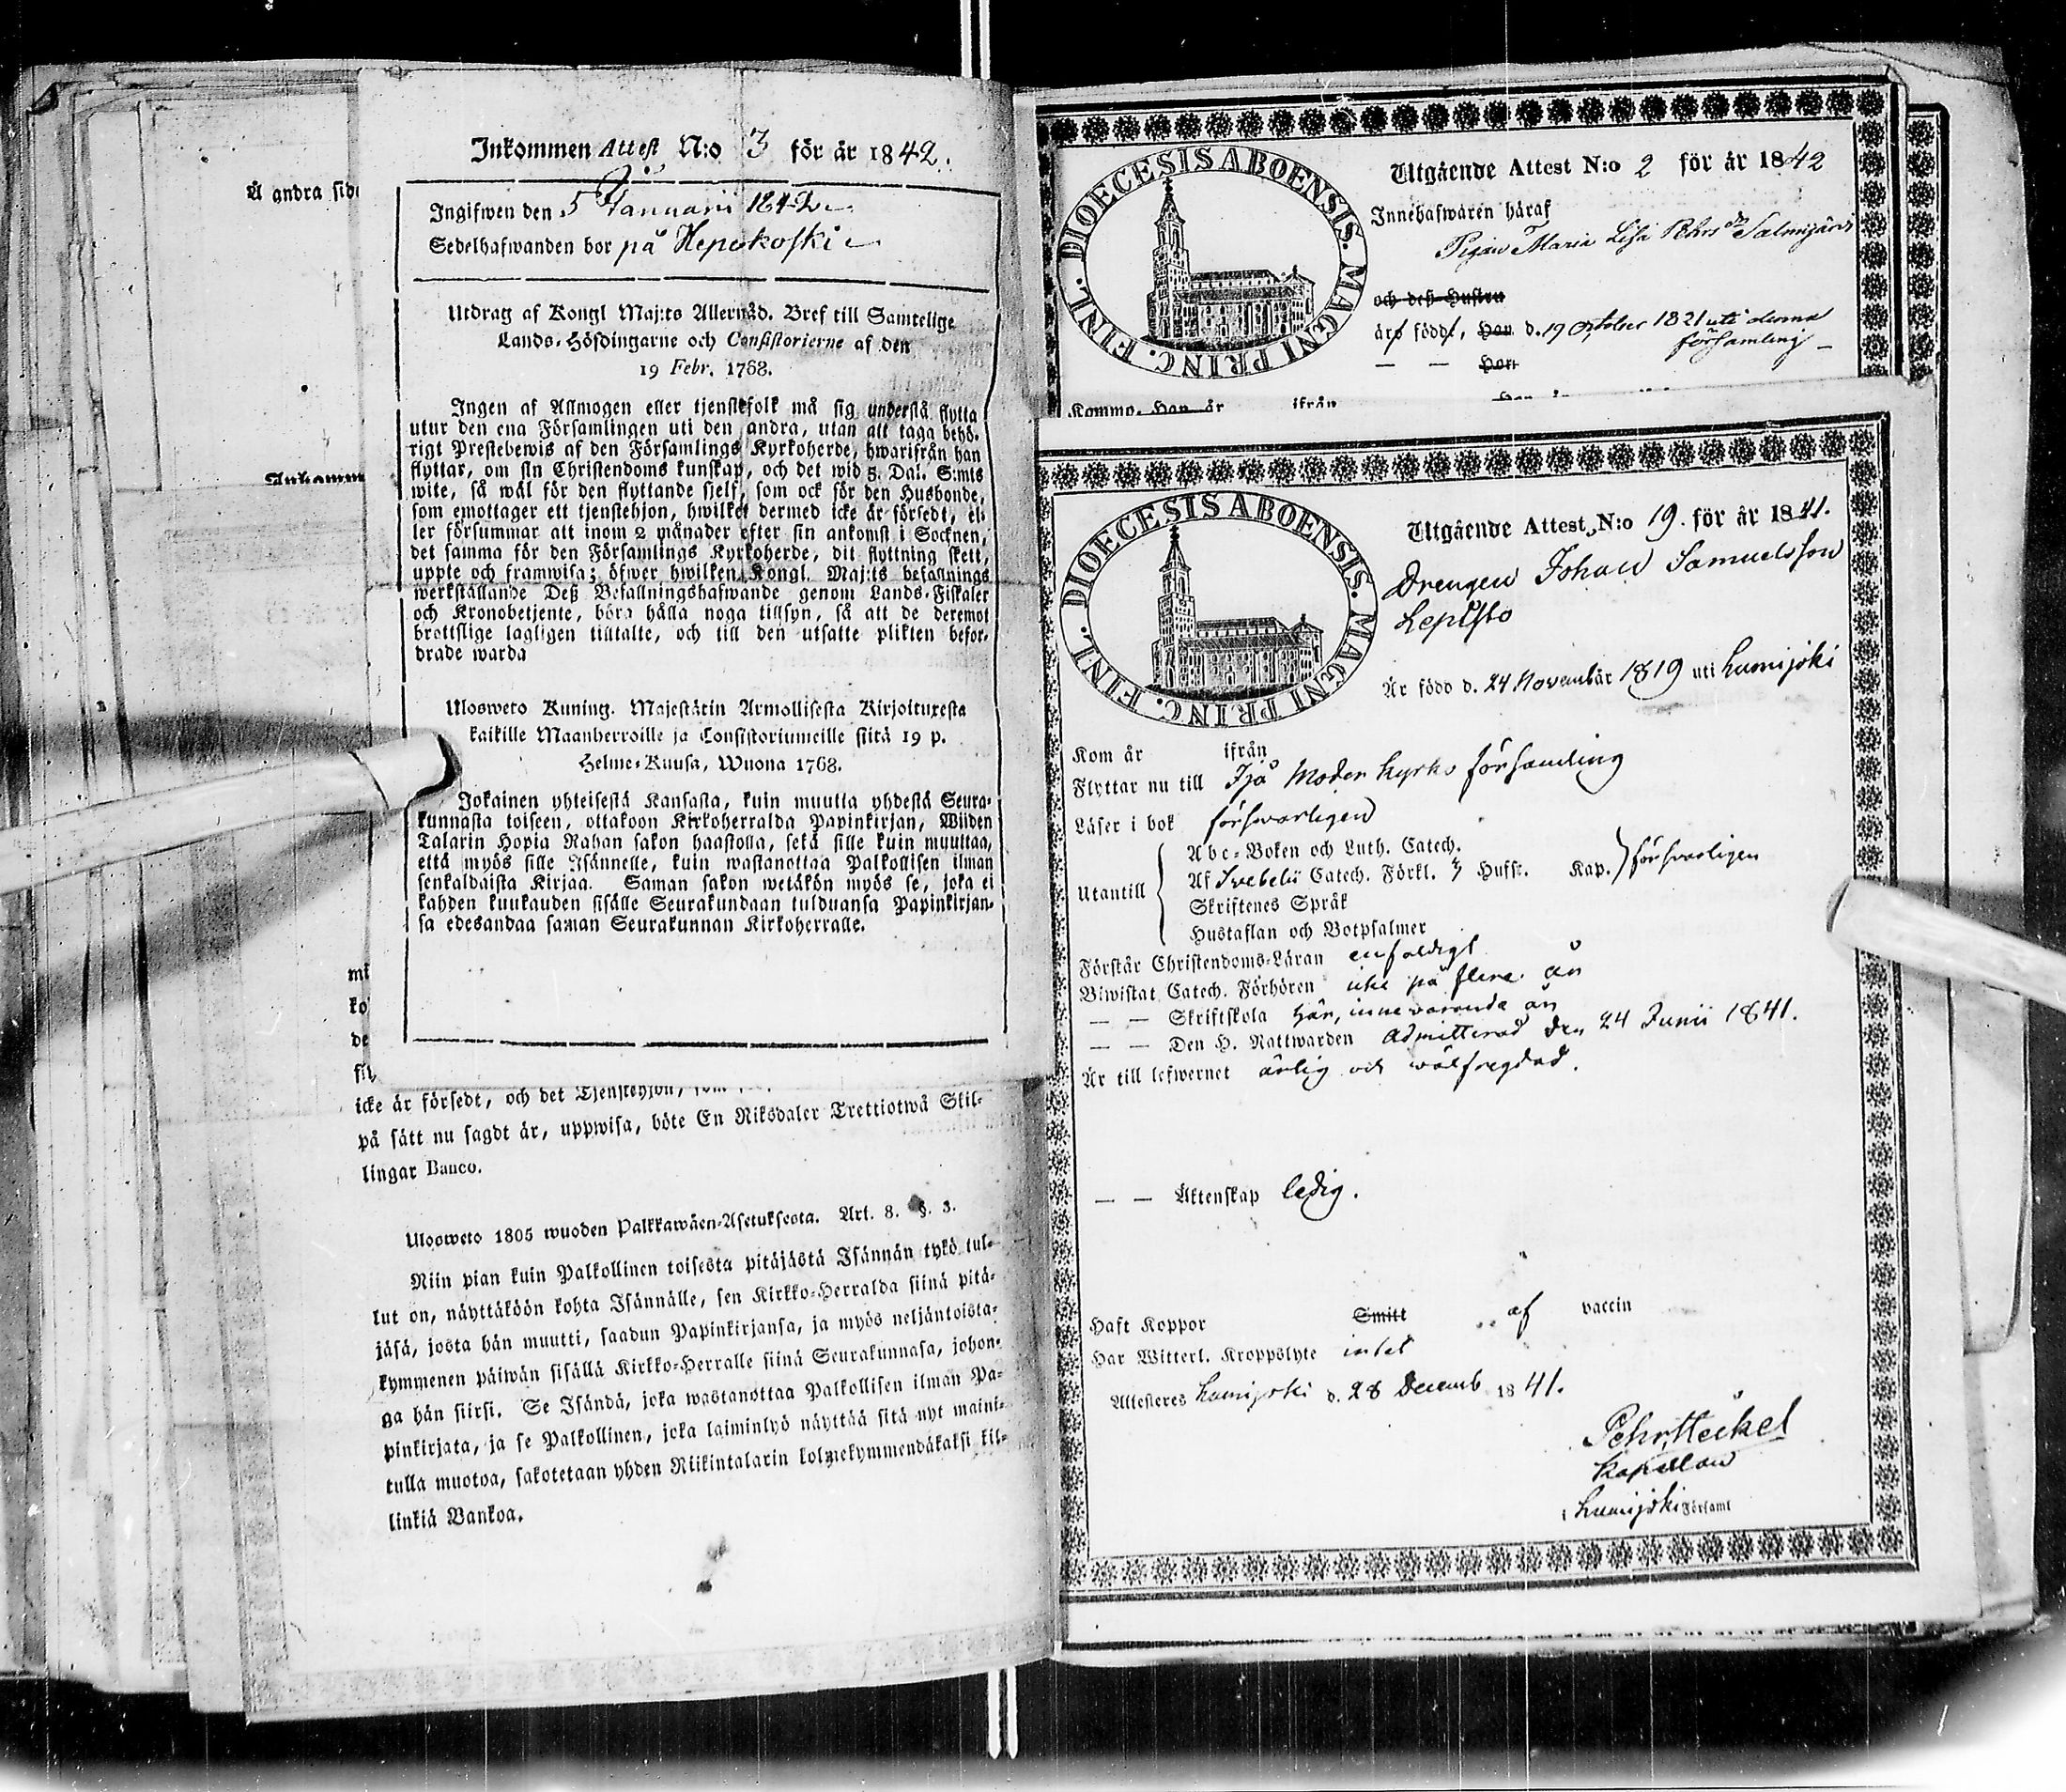 Å andra side
Inkomm
Inkommen Attest N:o 3 för år 1842.
Ingifwen den 5 Januarii 1842
Sedelhafwanden bor på Hepokoski
Utdrag af Kongl Maj:ts Allernåd. Bref till Samtelige
Lands-Höfdingarne och Consistorierne af den
19 Febr. 1768.
Ingen af Allmogen eller tjenstefolk må sig understå flytta
utur den ena Församlingen uti den andra, utan att taga behö-
rigt Prestebewis af den Församlings Kyrkoherde, hwarifrån han
flyttar, om sin Christendoms kunskap, och det wid 5. Dal. S:mts
wite, så wäl för den flyttande sjelf, som ock för den Husbonde,
som emottager ett tjenstehjon, hwilket dermed icke är försedt, el-
ler försummar att inom 2 månader efter sin ankomst i Socknen,
det samma för den Församlings Kyrkoherde, dit flyttning skett,
uppte och framwisa; öfwer hwilken Kongl. Maj:ts befallnings
werkställande Deß Befallningshafwande genom Lands-Fiskaler
och Kronobetjente, böra hålla noga tillsyn, så att de deremot
brottslige lagligen tilltalte, och till den utsatte plikten befor-
drade warda
Ulosweto Kuning. Majestätin Armollisesta Kirjoituxesta
kaikille Maanherroille ja Consistoriumeille siitä 19 p.
Helme-Kuusa, Wuona 1768.
Jokainen yhteisestä Kansasta, kuin muutta yhdestä Seura-
kunnasta toiseen, ottakoon Kirkoherralda Papinkirjan, Wiiden
Talarin Hopia Rahan sakon haastolla, sekä sille kuin muuttaa,
että myös sille Isännelle, kuin wastanottaa Palkollisen ilman
senkaldaista Kirjaa. Saman sakon wetäkön myös se, joka ei
kahden kuukauden sisälle Seurakundaan tulduansa Papinkirjan-
sa edesandaa saman Seurakunnan Kirkoherralle.
mi
ko
de
sil
icke är försedt, och det Tjenstehjon, som
på sätt nu sagdt är, uppwisa, böte En Riksdaler Trettiotwå Skil-
lingar Banco.
Ulosweto 1805 wuoden Palkkawäen-Asetuksesta. Art. 8. §. 3.
Niin pian kuin Palkollinen toisesta pitäjästä Isännän tykö tul-
lut on, näyttäköön kohta Isännälle, sen Kirkko-Herralda siinä pitä-
jäsä, josta hän muutti, saadun Papinkirjansa, ja myös neljäntoista-
kymmenen päiwän sisällä Kirkko-Herralle siinä Seurakunnasa, johon-
ga hän siirsi. Se Isändä, joka wastanottaa Palkollisen ilman Pa-
pinkirjata, ja se Palkollinen, joka laiminlyö näyttää sitä nyt maini-
tulla muotoa, sakotetaan yhden Riikintalarin kolmekymmendäkaksi kil-
linkiä Bankoa.
DIOECESIS ABOENSIS. MAGNI PRINC. FINL.
Utgående Attest N:o 2 för år 1842
Innehafwaren häraf
Pigan Maria Lisa Pehrsdr Salmijärvi
och deß Hustru
är född, Han d. 19 October 1821 uti denna
församling
— — Hon
Kommo, Han år ifrån
DIOECESIS ABOENSIS. MAGNI PRINC. FINL.
Utgående Attest N:o 19. för år 1841.
Drengen Johan Samuelsson
Lepistö
Är född d. 24 November 1819 uti Lumijoki
Kom år ifrån
Flyttar nu till Ijå Moder kyrko församling
Läser i bok försvarligen
Utantill
Abc-Boken och Luth. Catech.
Af Svebelii Catech. Förkl. 3 Hufst. Kap. försvarligen
Skriftenes Språk
Hustaflan och Botpsalmer
Förstår Christendoms-Läran enfaldigt
Biwistat Catech. Förhören icke på flera år
— — Skriftskola här, innevarande år
— — Den H. Nattwarden Admitterad den 24 Junii 1841.
Är till lefwernet ärlig och wälfregdad.
— — Äktenskap ledig.
Haft Koppor Smitt af vaccin
Har Witterl. Kroppslyte intet
Attesteres Lumijoki d. 28 Decemb 1841.
Pehr Heickel
Kapellan
i Lumijoki Församl